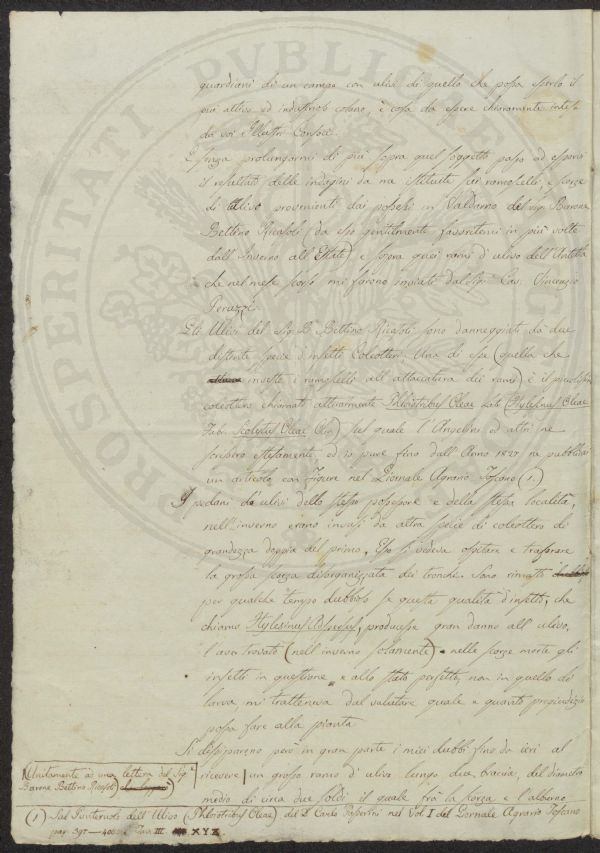 guardiani di un campo con ulivi di quello che possa esserlo il
più attivo ed industrioso colono, è cosa da essere chiaramente intesa
da voi Illustri Consoci.
E senza prolungarmi di più sopra quel soggetto passo ad esporvi
il resultato delle indagini da me istituite sui ramoscelli, e scorze
di Ulivo provenienti dai poderi in Valdarno del sig. Barone
Bettino Ricasoli (da esso gentilmente favoritemi in più volte
dall'Inverno all'Estate) e sopra quei rami d'ulivo dell'Antella
che nel mese scorso mi furono inviati dal Sig. Cav. Vincenzio
Peruzzi.
Gli Ulivi del Sig. B. Bettino Ricasoli sono danneggiati da due
distinte specie d'insetti Coleotteri. Una di esse (quella che
investe i ramoscelli all'attaccatura dei rami) è il piccolissimo
coleottero chiamato attualmente Phloiotribus Oleae Latr. (Hylesinus Oleae
Fab. Scolytus Oleae Oliv.) sul quale l'Angelini ed altri ne
scrissero estesamente, ed io pure fino dall'Anno 1827 ne pubblicai
un articolo con figura nel Giornale Agrario Toscano (1.)
I pedani di ulivi dello stesso possessore e della stessa località,
nell'inverno erano invasi da altra specie di coleottero di
grandezza doppia del primo, Esso si vedeva ospitare e traforare
la grossa scorza disorganizzata dei tronchi. Sono rimasto
per qualche tempo dubbioso se questa qualità d'insetto, che
chiamo Hylesinus Adspersus, producesse gran danno all'ulivo,
l'aver trovato (nell'inverno solamente) nelle scorze morte gli
insetti in questione e allo stato perfetto, non in quello di
larva mi tratteneva dal valutare quale e quanto pregiudizio
possa fare alla pianta
Si dissiparono però in gran parte i miei dubbi fino da ieri al
ricevere un grosso ramo d'ulivo lungo due braccia, del diametro
medio di circa due soldi il quale frà la scorza e l'alburno
Unitamente ad una lettera del Sig.
Barone Bettino Ricasoli
(1) Sul Punteruolo dell'Ulivo (Phloiotribus Oleae) del D. Carlo Passerini nel Vol. I del Giornale Agrario Toscano
pag. 397—400 Tav. III. XYZ.